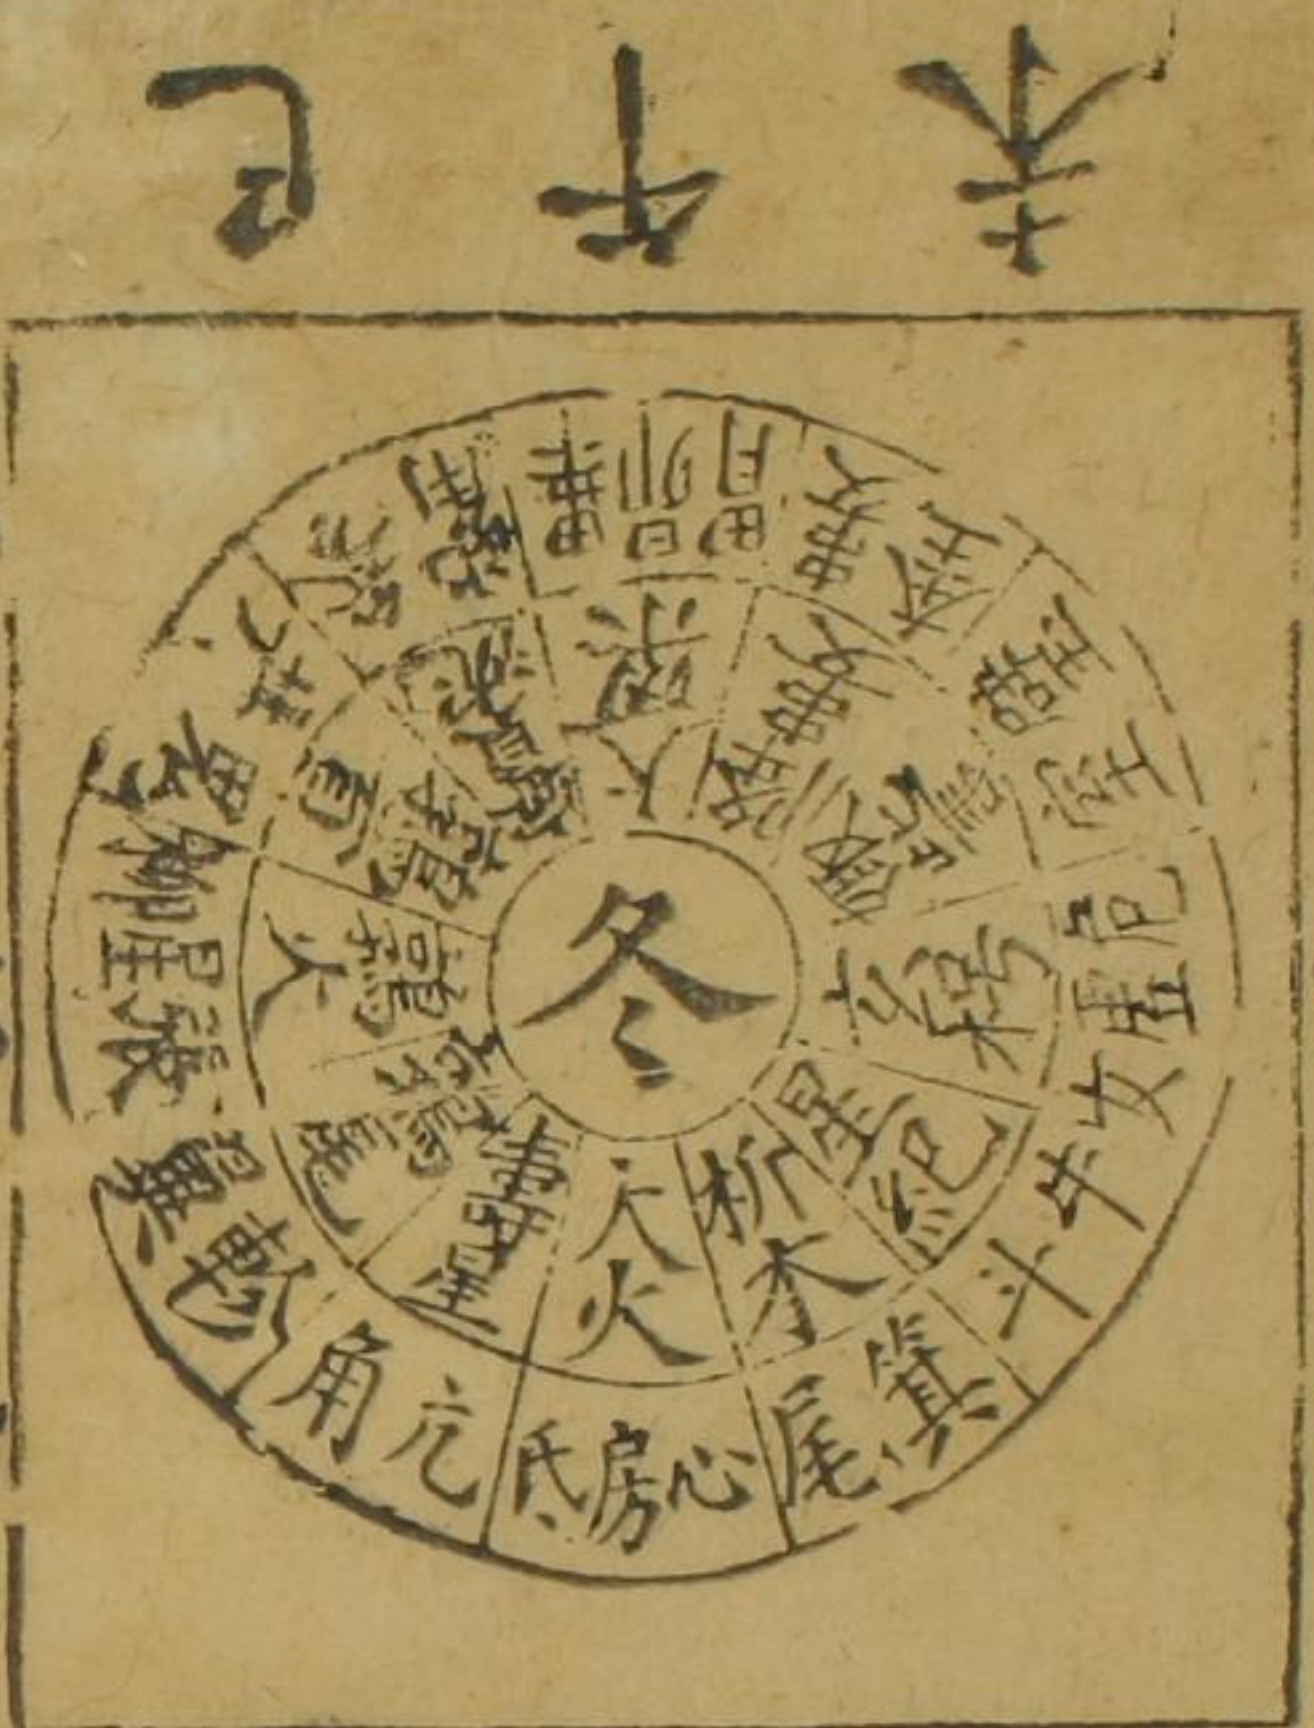 巳
午
未
冬
壽星
大火
析木
星紀
玄枵
降婁
大梁
實沈
鶉首
鶉火
鶉尾
角亢
氐房心
尾箕
斗牛
女虛危
室壁
奎婁
胃昴畢
觜參
井鬼
柳星張
翼軫